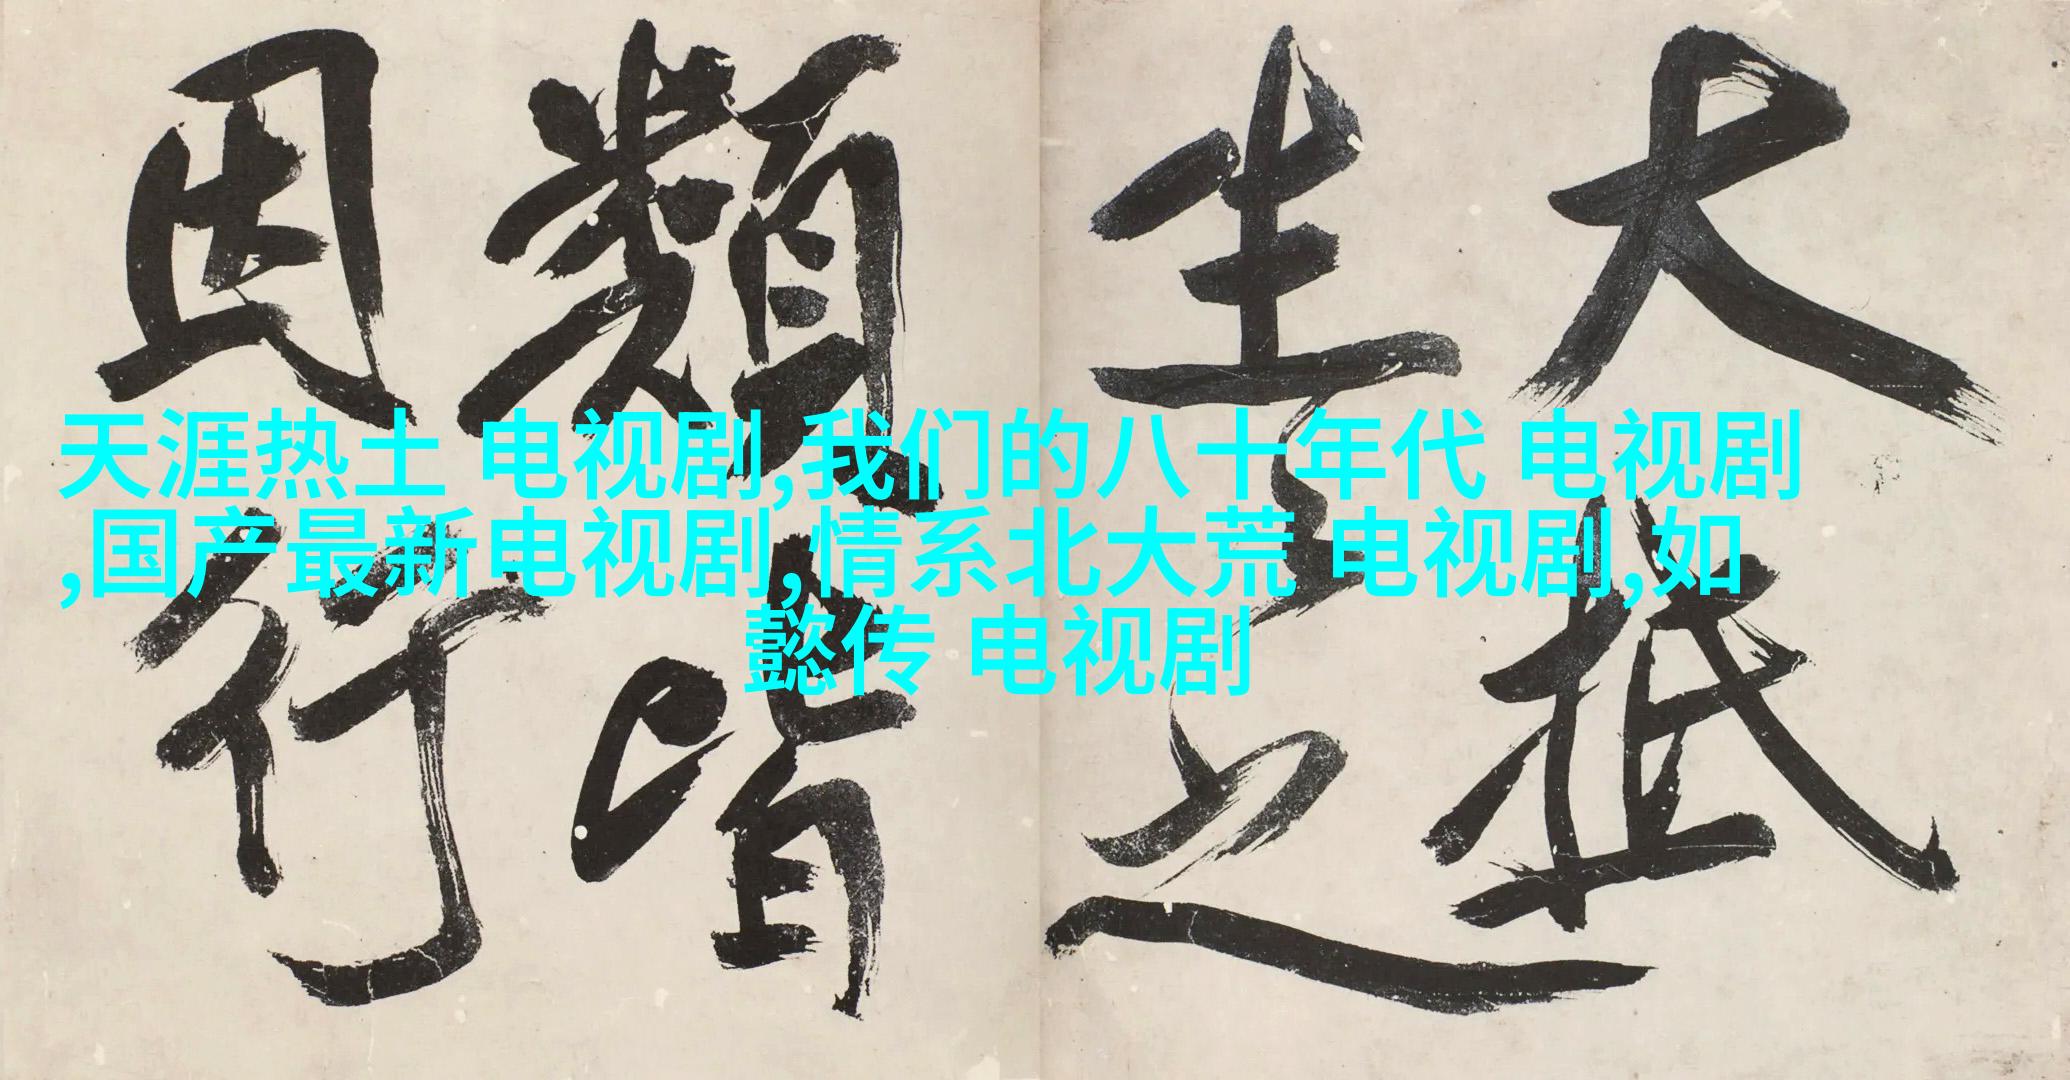 大抵
生至之
類皆
因行
天涯热土 电视剧,我们的八十年代 电视剧
,国产最新电视剧,情系北大荒 电视剧,如
懿传 电视剧